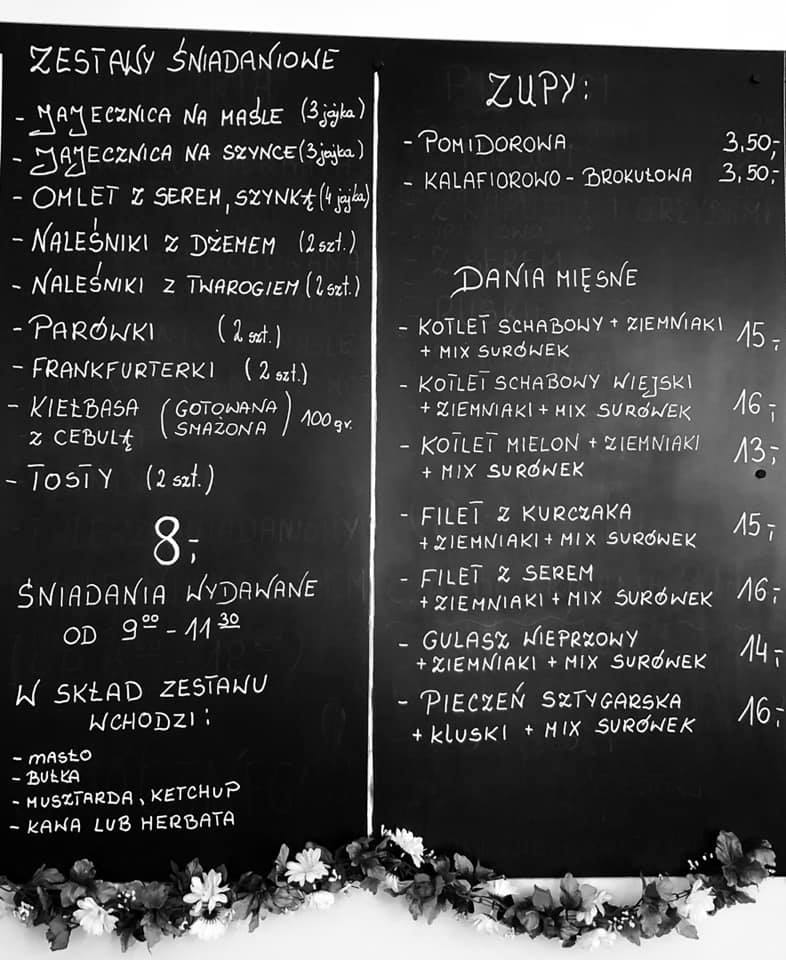 ZESTAWY ŚNIADANIOWE
- JAJECZNICA NA MAŚLE (3 jajka)
- JAJECZNICA NA SZYNCE (3 jajka)
- OMLET Z SEREM, SZYNKĄ (4 jajka)
- NALEŚNIKI Z DŻEMEM (2 szt.)
- NALEŚNIKI Z TWAROGIEM (2 szt.)
- PARÓWKI (2 szt.)
- FRANKFURTERKI (2 szt.)
- KIEŁBASA (GOTOWANA
Z CEBULĄ SMAŻONA) 100 gr.
- TOSTY (2 szt.)
8,-
ŚNIADANIA WYDAWANE
OD 9⁰⁰ - 11³⁰
W SKŁAD ZESTAWU
WCHODZI:
- MASŁO
- BUŁKA
- MUSZTARDA, KETCHUP
- KAWA LUB HERBATA
ZUPY:
- POMIDOROWA 3,50,-
- KALAFIOROWO - BROKUŁOWA 3,50,-
DANIA MIĘSNE
- KOTLET SCHABOWY + ZIEMNIAKI 15,-
+ MIX SURÓWEK
- KOTLET SCHABOWY WIEJSKI
+ ZIEMNIAKI + MIX SURÓWEK 16,-
- KOTLET MIELON + ZIEMNIAKI 13,-
+ MIX SURÓWEK
- FILET Z KURCZAKA
+ ZIEMNIAKI + MIX SURÓWEK 15,-
- FILET Z SEREM
+ ZIEMNIAKI + MIX SURÓWEK 16,-
- GULASZ WIEPRZOWY
+ ZIEMNIAKI + MIX SURÓWEK 14,-
- PIECZEŃ SZTYGARSKA
+ KLUSKI + MIX SURÓWEK 16,-